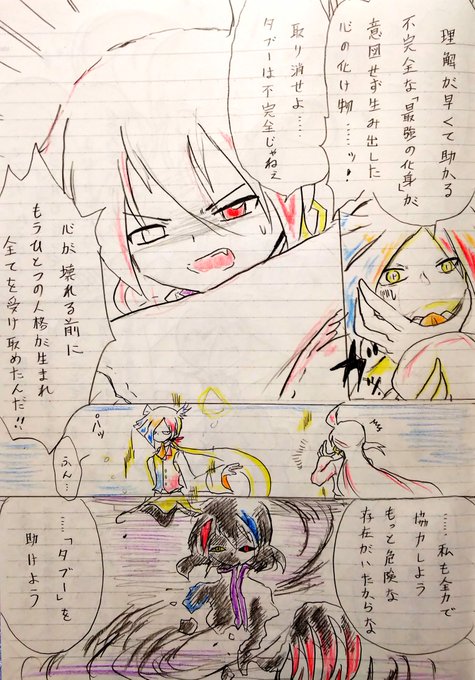 理解が早くて助かる
不完全な「最強の化身」が
意図せず生み出した
心の化け物……ッ!
取り消せよ……
タブーは不完全じゃねぇ
ガッ
心が壊れる前に
もうひとつの人格が生まれ
全てを受け止めたんだ!!
パッ
ふん…
……私も全力で
協力しよう
もっと危険な
存在がいたからな
……「タブー」を
助けよう